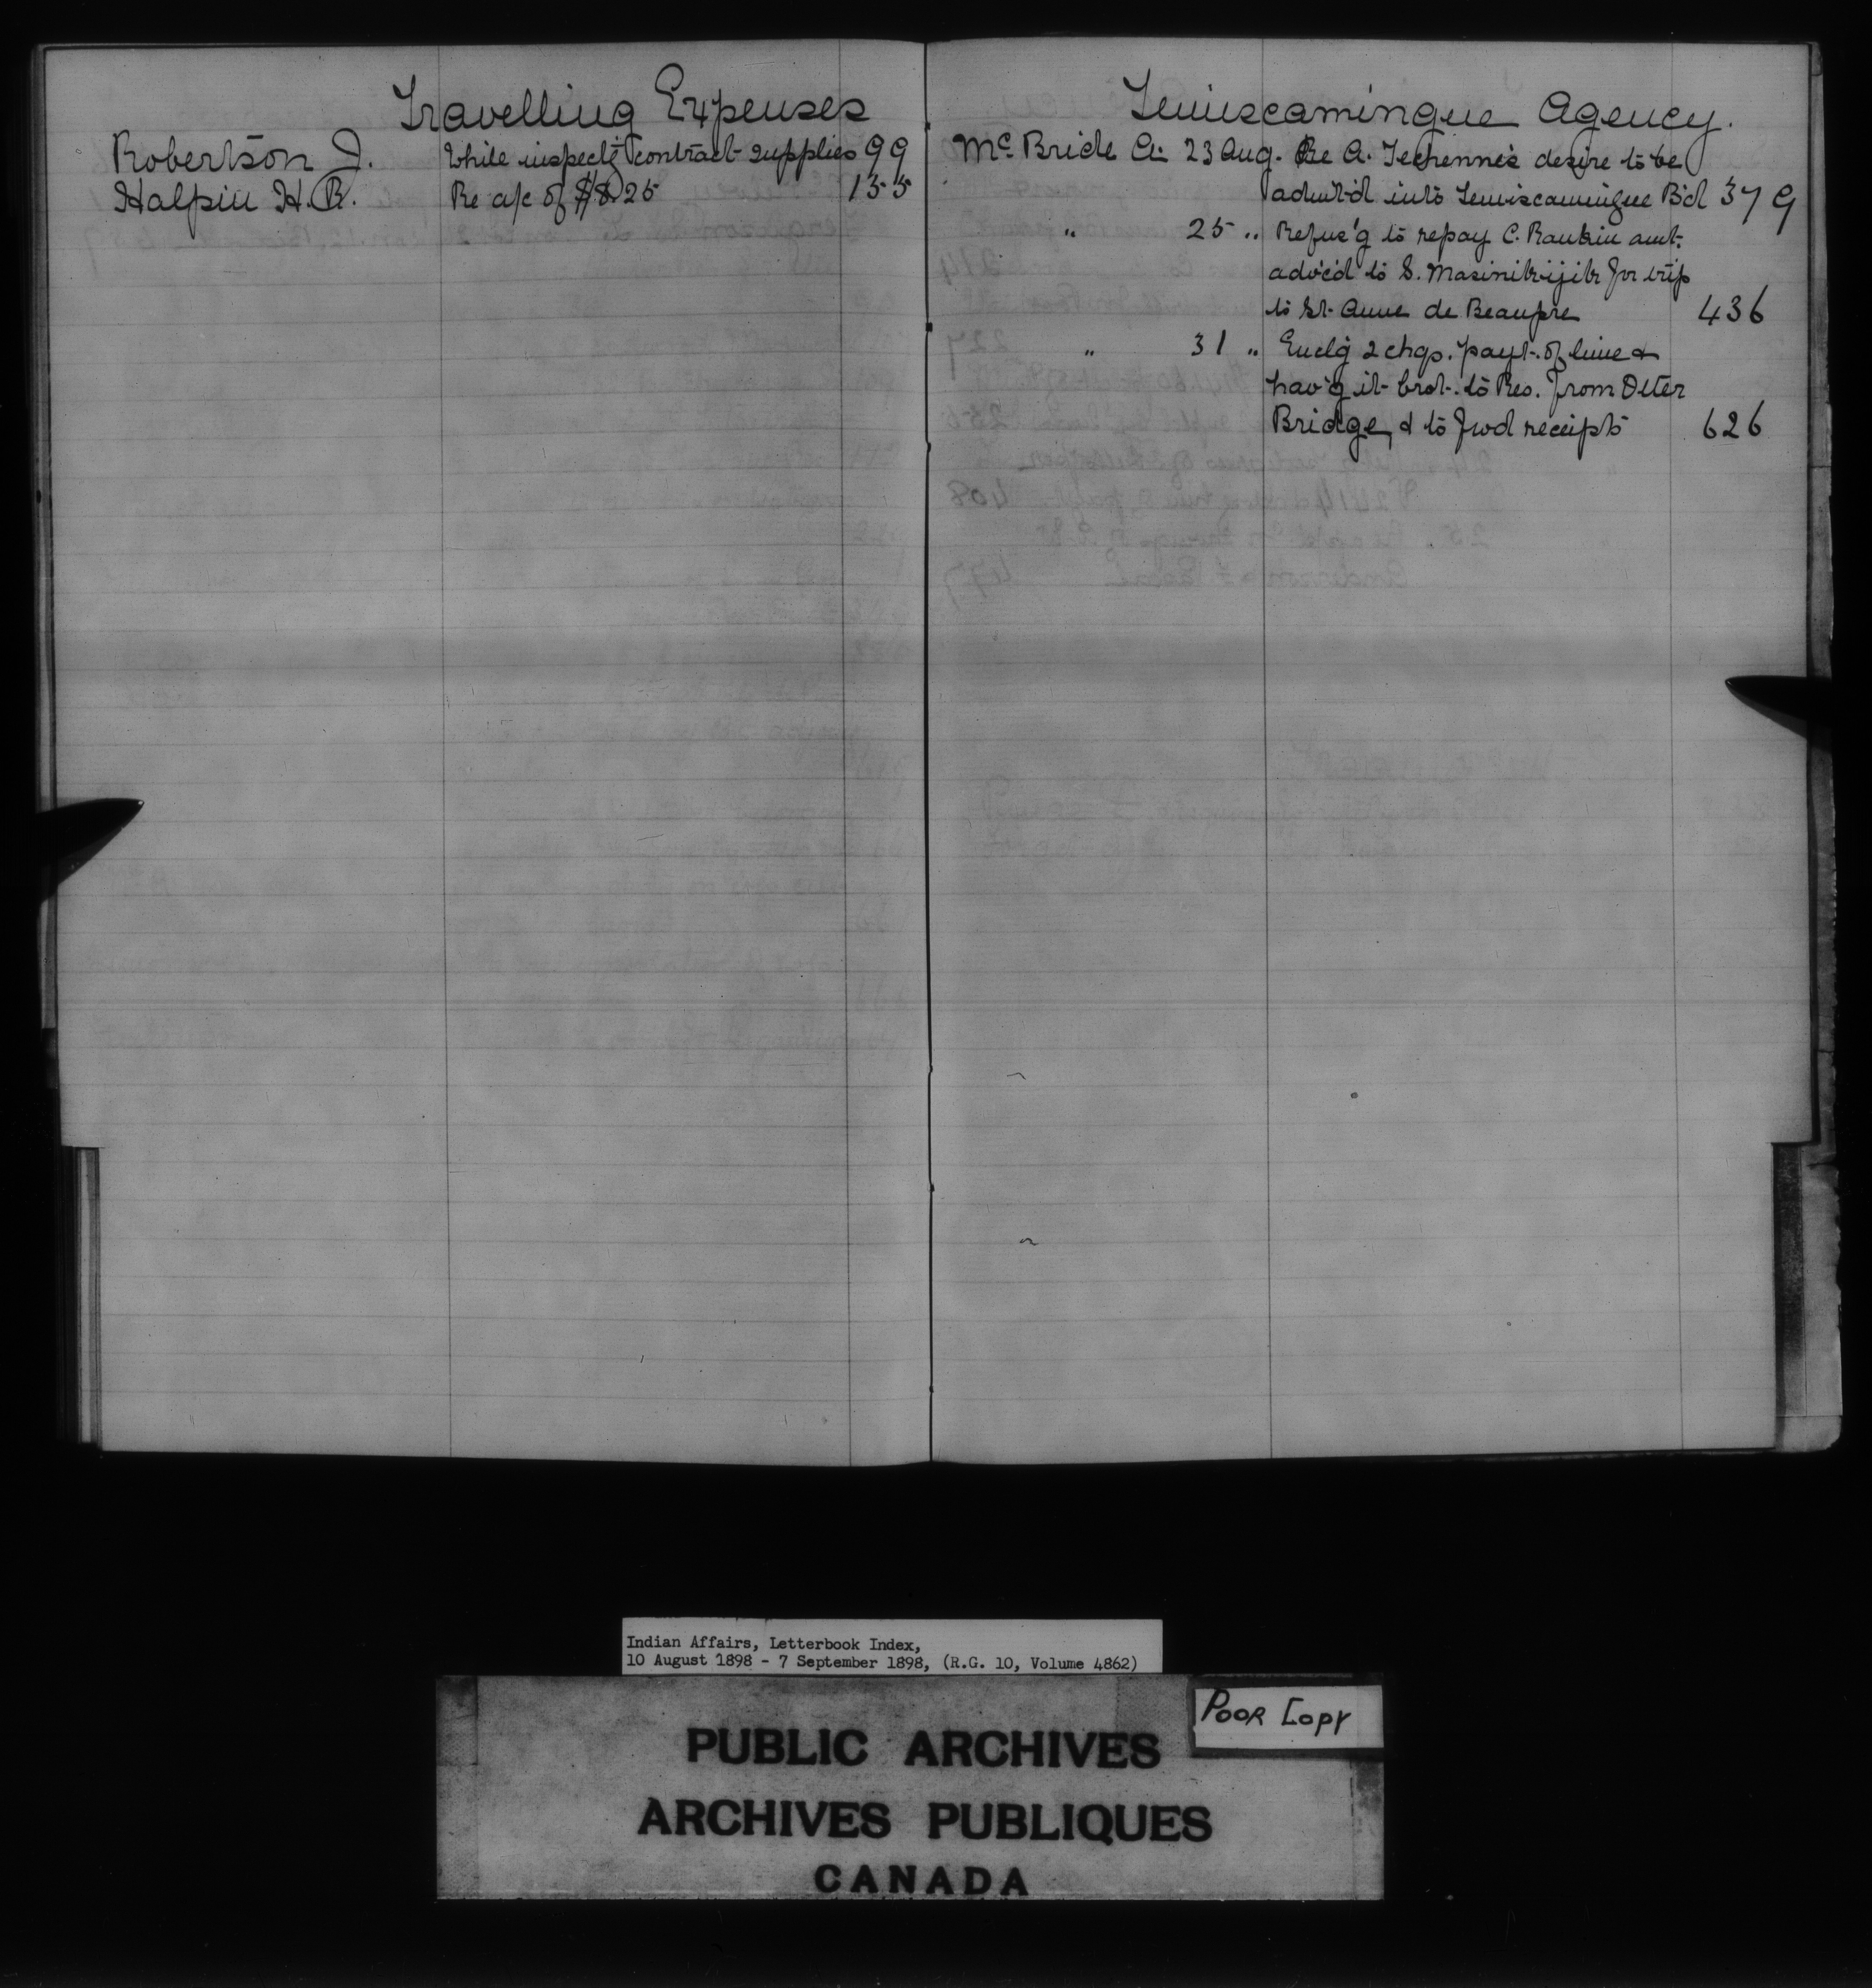 Travelling Expenses
Robertson J. While inspect'g contract supplies 99
Halpin H.R. Re a/c of $8.25 155
Temiscamingue Agency.
McBride A. 23 Aug. Re A. Techenne's desire to be
admit'd into Temiscamingue B'd 379
" 25 " Refus'g to repay C. Rankin amt.
adv'cd to S. for trip
to St. Anne de Beaupre 436
" 31 " Encl'g 2 chqs. payt. of lime &
hav'g it brot. to Res. from Otter
Bridge, & to fwd receipts 626
Indian Affairs, Letterbook Index,
10 August 1898 - 7 September 1898, (R.G. 10, Volume 4862)
POOR COPY
PUBLIC ARCHIVES
ARCHIVES PUBLIQUES
CANADA